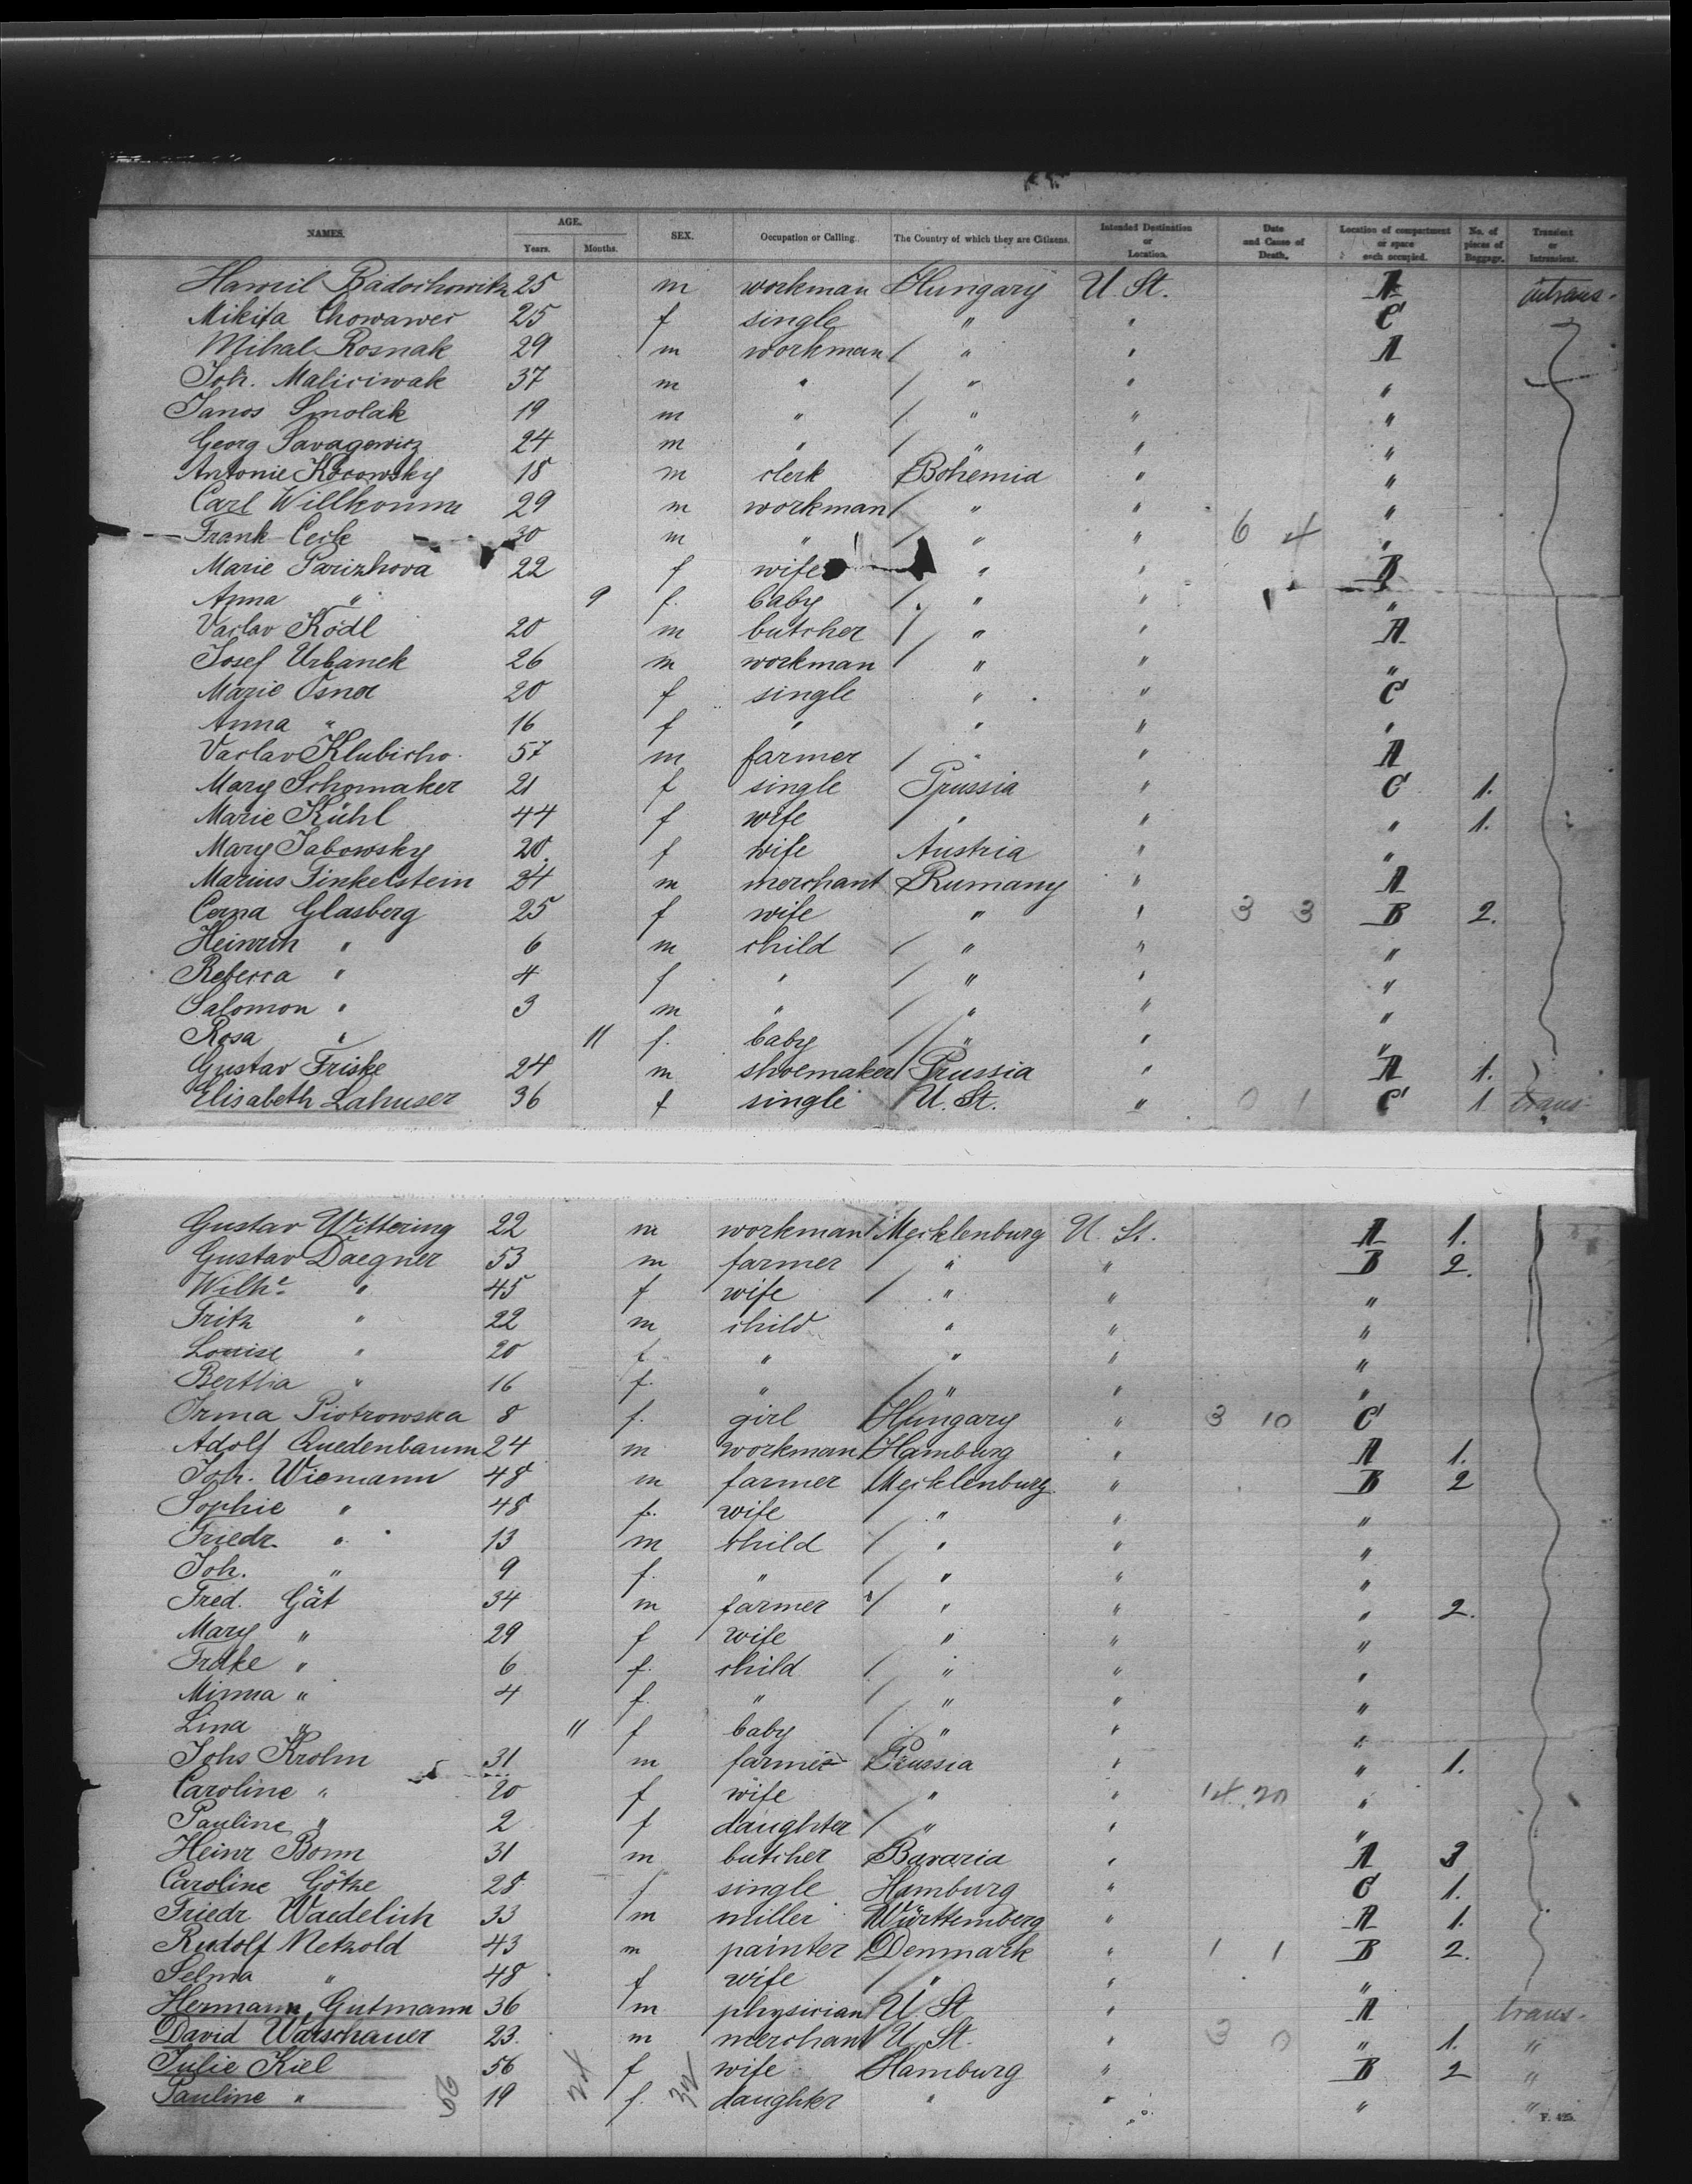 NAMES. AGE. Years. Months. SEX. Occupation or Calling. The Country of which they are Citizens. Intended Destination or Location. Date and Cause of Death. Location of compartment or space each occupied. No. of pieces of Baggage. Transient or Intransient.
Hawril Radochowitz 25 m workman Hungary U. St. A intrans-
Mikita Chowawec 25 f single " " C
Mihal Rosnak 29 m workman / " " A
Joh. Maliciwak 37 m " / " " "
Janos Smolak 19 m " / " " "
Georg Savagowicz 24 m " / " " "
Antonie Kocowsky 18 m clerk Bohemia " "
Carl Willkomm 29 m workman / " " "
Frank Cerle 30 m " / " " 6 4 "
Marie Parizkova 22 f wife " " B
Anna " 9 f. baby / " " "
Vaclav Ködl 20 m butcher / " " A
Josef Urbanek 26 m workman / " " "
Marie Osna 20 f single " " C
Anna " 16 f " " " "
Vaclav Klubicho 57 m farmer / " " A
Mary Schomaker 21 f single Prussia " C 1.
Marie Kühl 44 f wife / " " " 1.
Mary Jabowsky 20 f wife Austria " "
Marius Finkelstein 24 m merchant Rumany " A
Cerna Glasberg 25 f wife " " 3 3 B 2.
Heinrich " 6 m child / " " "
Rebecca " 4 f " / " " "
Salomon " 3 m " / " " "
Rosa " 11 f. baby / " " "
Gustav Friske 24 m shoemaker / Prussia " A 1.
Elisabeth Lahuser 36 f single U. St. " 0 1 C 1 trans-
Gustav Wittering 22 m workman / Mecklenburg U. St. A 1.
Gustav Daegner 53 m farmer / " " B 2.
Wilhe " 45 f wife / " " "
Fritz " 22 m child " " "
Louise " 20 f " " " "
Bertha " 16 f. " / " " "
Irma Piotrowska 8 f. girl Hungary " 3 10 C
Adolf Quedenbaum 24 m workman Hamburg " A 1.
Joh. Wiemann 48 m farmer Mecklenburg " B 2
Sophie " 48 f. wife / " " "
Friedr. " 13 m child / " " "
Joh. " 9 f. " / " " "
Fred. Gät 34 m farmer / " " " 2.
Mary " 29 f wife " " "
Frdke " 6 f. child / " " "
Minna " 4 f. " / " " "
Lina " 11 f baby / " " "
Johs Krohn 31 m farmer Prussia " " 1.
Caroline " 20 f wife " " 14 20 "
Pauline " 2 f daughter / " " "
Heinr Bonn 31 m butcher Bavaria " A 3
Caroline Götze 28 f single Hamburg " C 1.
Friedr Waedelich 33 m miller Württemberg " A 1.
Rudolf Netzold 43 m painter Denmark " 1 1 B 2.
Selma " 48 f wife / " " "
Hermann Gutmann 36 m physician U St. " A trans-
David Warschauer 23 m merchant U. St. " 3 0 " 1. "
Julie Kiel 56 f wife Hamburg " B 2 "
Pauline " 19 f. daughter " " " "
F. 425.